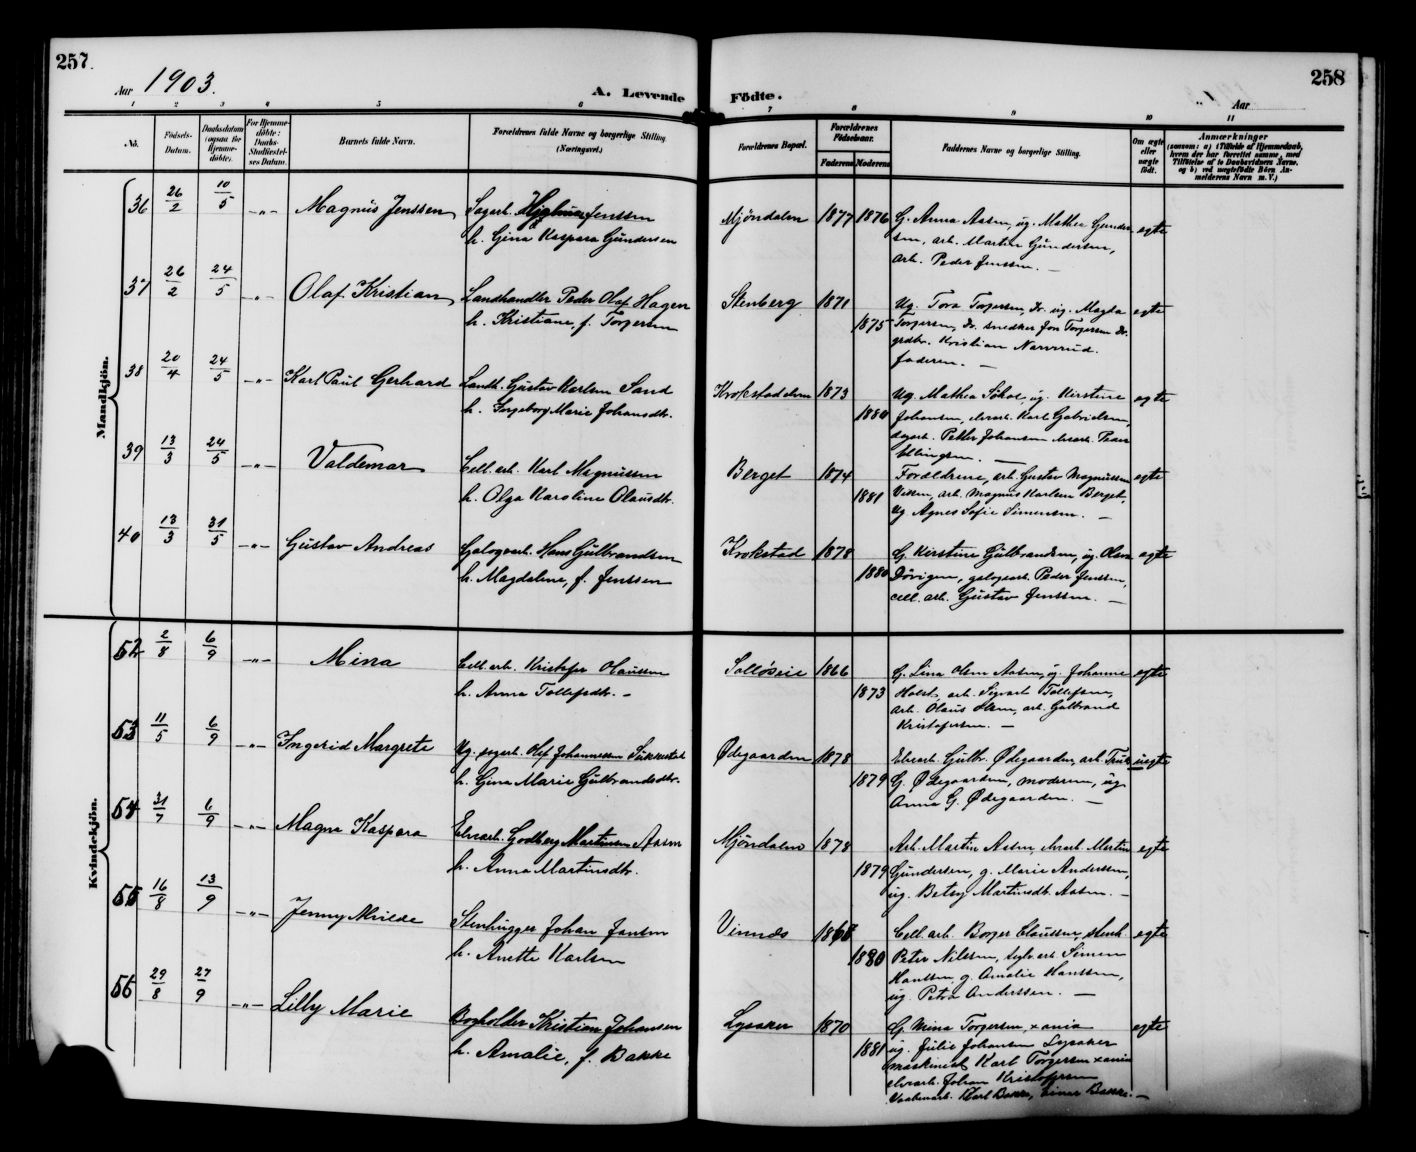 257.
Aar 1903.
A. Levende
Födte.
258
Aar
1 2 3 4 5 6 7 8 9 10 11
No. Födsels-Datum. Daabsdatum (ogsaa for Hjemmedöbte). For Hjemmedöbte: Daabs-Stadfæstelses Datum. Barnets fulde Navn. Forældrenes fulde Navne og borgerlige Stilling (Næringsvei.) Forældrenes Bopæl. Forældrenes Födselsaar. Faderens Moderens Faddernes Navne og borgerlige Stilling. Om ægte eller uægte födt. Anmærkninger
Mandkjön.
36 26/2 10/5 -„- Magnus Jenssen Sagarb. Jenssen Mjöndalen 1877 1876 G. Anna Aasen, ug. Mathea Gunder- egte
h. Gina Kaspara Gundersen
sen, arb. Martin Gundersen,
arb. Peder Jenssen. —
37 26/2 24/5 -„- Olaf Kristian Landhandler Peder Olaf Hagen Stenberg 1871 Ug. Tora Torgersen, ug. Magda egte
h. Kristiane, f. Torgersen 1875 Torgersen, snedker Torgersen
Kristian Narverud.
faderen. —
38 20/4 24/5 -„- Karl Paul Gerhard Landh. Gustav Karlsen Sand Krokstadelven 1873 Ug. Mathea ug. Kirstine egte
h. Ingeborg Marie Johansdtr. 1880 Johansen, Karl Gabrielsen,
Johansen Peder
Ellingsen. —
39 13/3 24/5 -„- Valdemar Cell. arb. Karl Magnussen Berget 1874 Forældrene, arb. Gustav Magnussen egte
h. Olga Karoline Olausdtr. 1881 arb. Magnus Karlsen Berget,
Ug Agnes Sofie Simensen. —
40 13/3 31/5 -„- Gustav Andreas Hans Gulbrandsen Krokstad 1878 G. Kirstine Gulbrandsen, ug. egte
h. Magdalene, f. Jenssen 1880 Peder Jenssen,
cell. arb. Gustav Jenssen. —
Kvindekjön.
52 2/8 6/9 -„- Mina Cell. arb. Kristofer Olaussen Solløs 1866 G. Lina Olsen Aasen, ug. Johanne egte
h. Anna Tollefsdtr. - 1873 Holst, arb. Sigvart Tollefsen,
arb. Olaus Olsen, arb. Gulbrand
Kristofersen. —
53 11/5 6/9 -„- Ingerid Margrete Ug. sagarb. Olaf Johannessen Ødegaarden 1878 Gulbr. Ødegaarden, arb. uegte
h. Gina Marie Gulbrandsdtr. 1879 G. Ødegaarden, moderen, ug
Anna G. Ødegaarden. —
54 31/7 6/9 -„- Magna Kaspara Elvearb. Godberg Martinsen Aasen Mjöndalen 1878 Arb. Martin Aasen, Martin egte
h. Anna Martinsdtr. 1879 Gundersen, g. Marie Anderssen,
ug. Betsy Martinsdtr. Aasen. —
55 16/8 13/9 -„- Jenny Stenhugger Johan Jansen Vinnæs Cell. arb. Borger Claussen, stenh. egte
h. Anette Karlsen 1880 Peter Nilssen, Simen
Hanssen, g. Amalie Hanssen,
ug. Petra Anderssen. —
56 29/8 27/9 -„- Lilly Marie Bogholder Kristian Johansen Lysaker 1870 G. Mina Torgersen, egte
h. Amalie, f. Bakke 1881 ug. Julie Johansen Lysaker
maskinist Karl Torgersen
elvearb. Johan Kristofersen
Karl Bakke, Einar Bakke. —